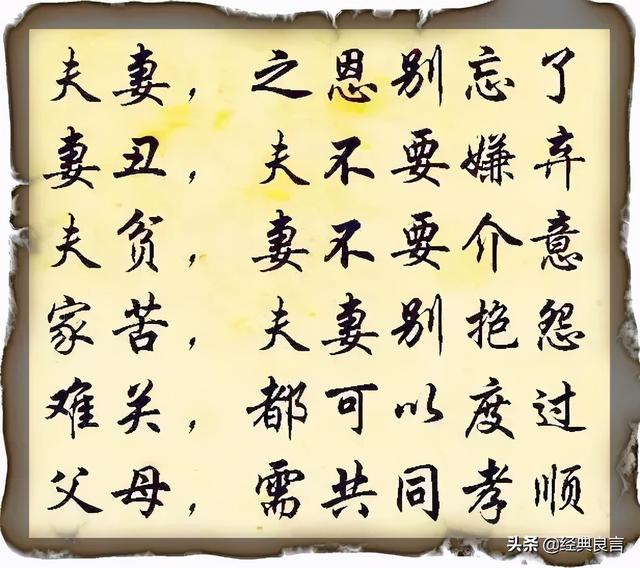 夫妻，之恩别忘了
妻丑，夫不要嫌弃
夫贫，妻不要介意
家苦，夫妻别抱怨
难关，都可以度过
父母，需共同孝顺
头条 @经典良言